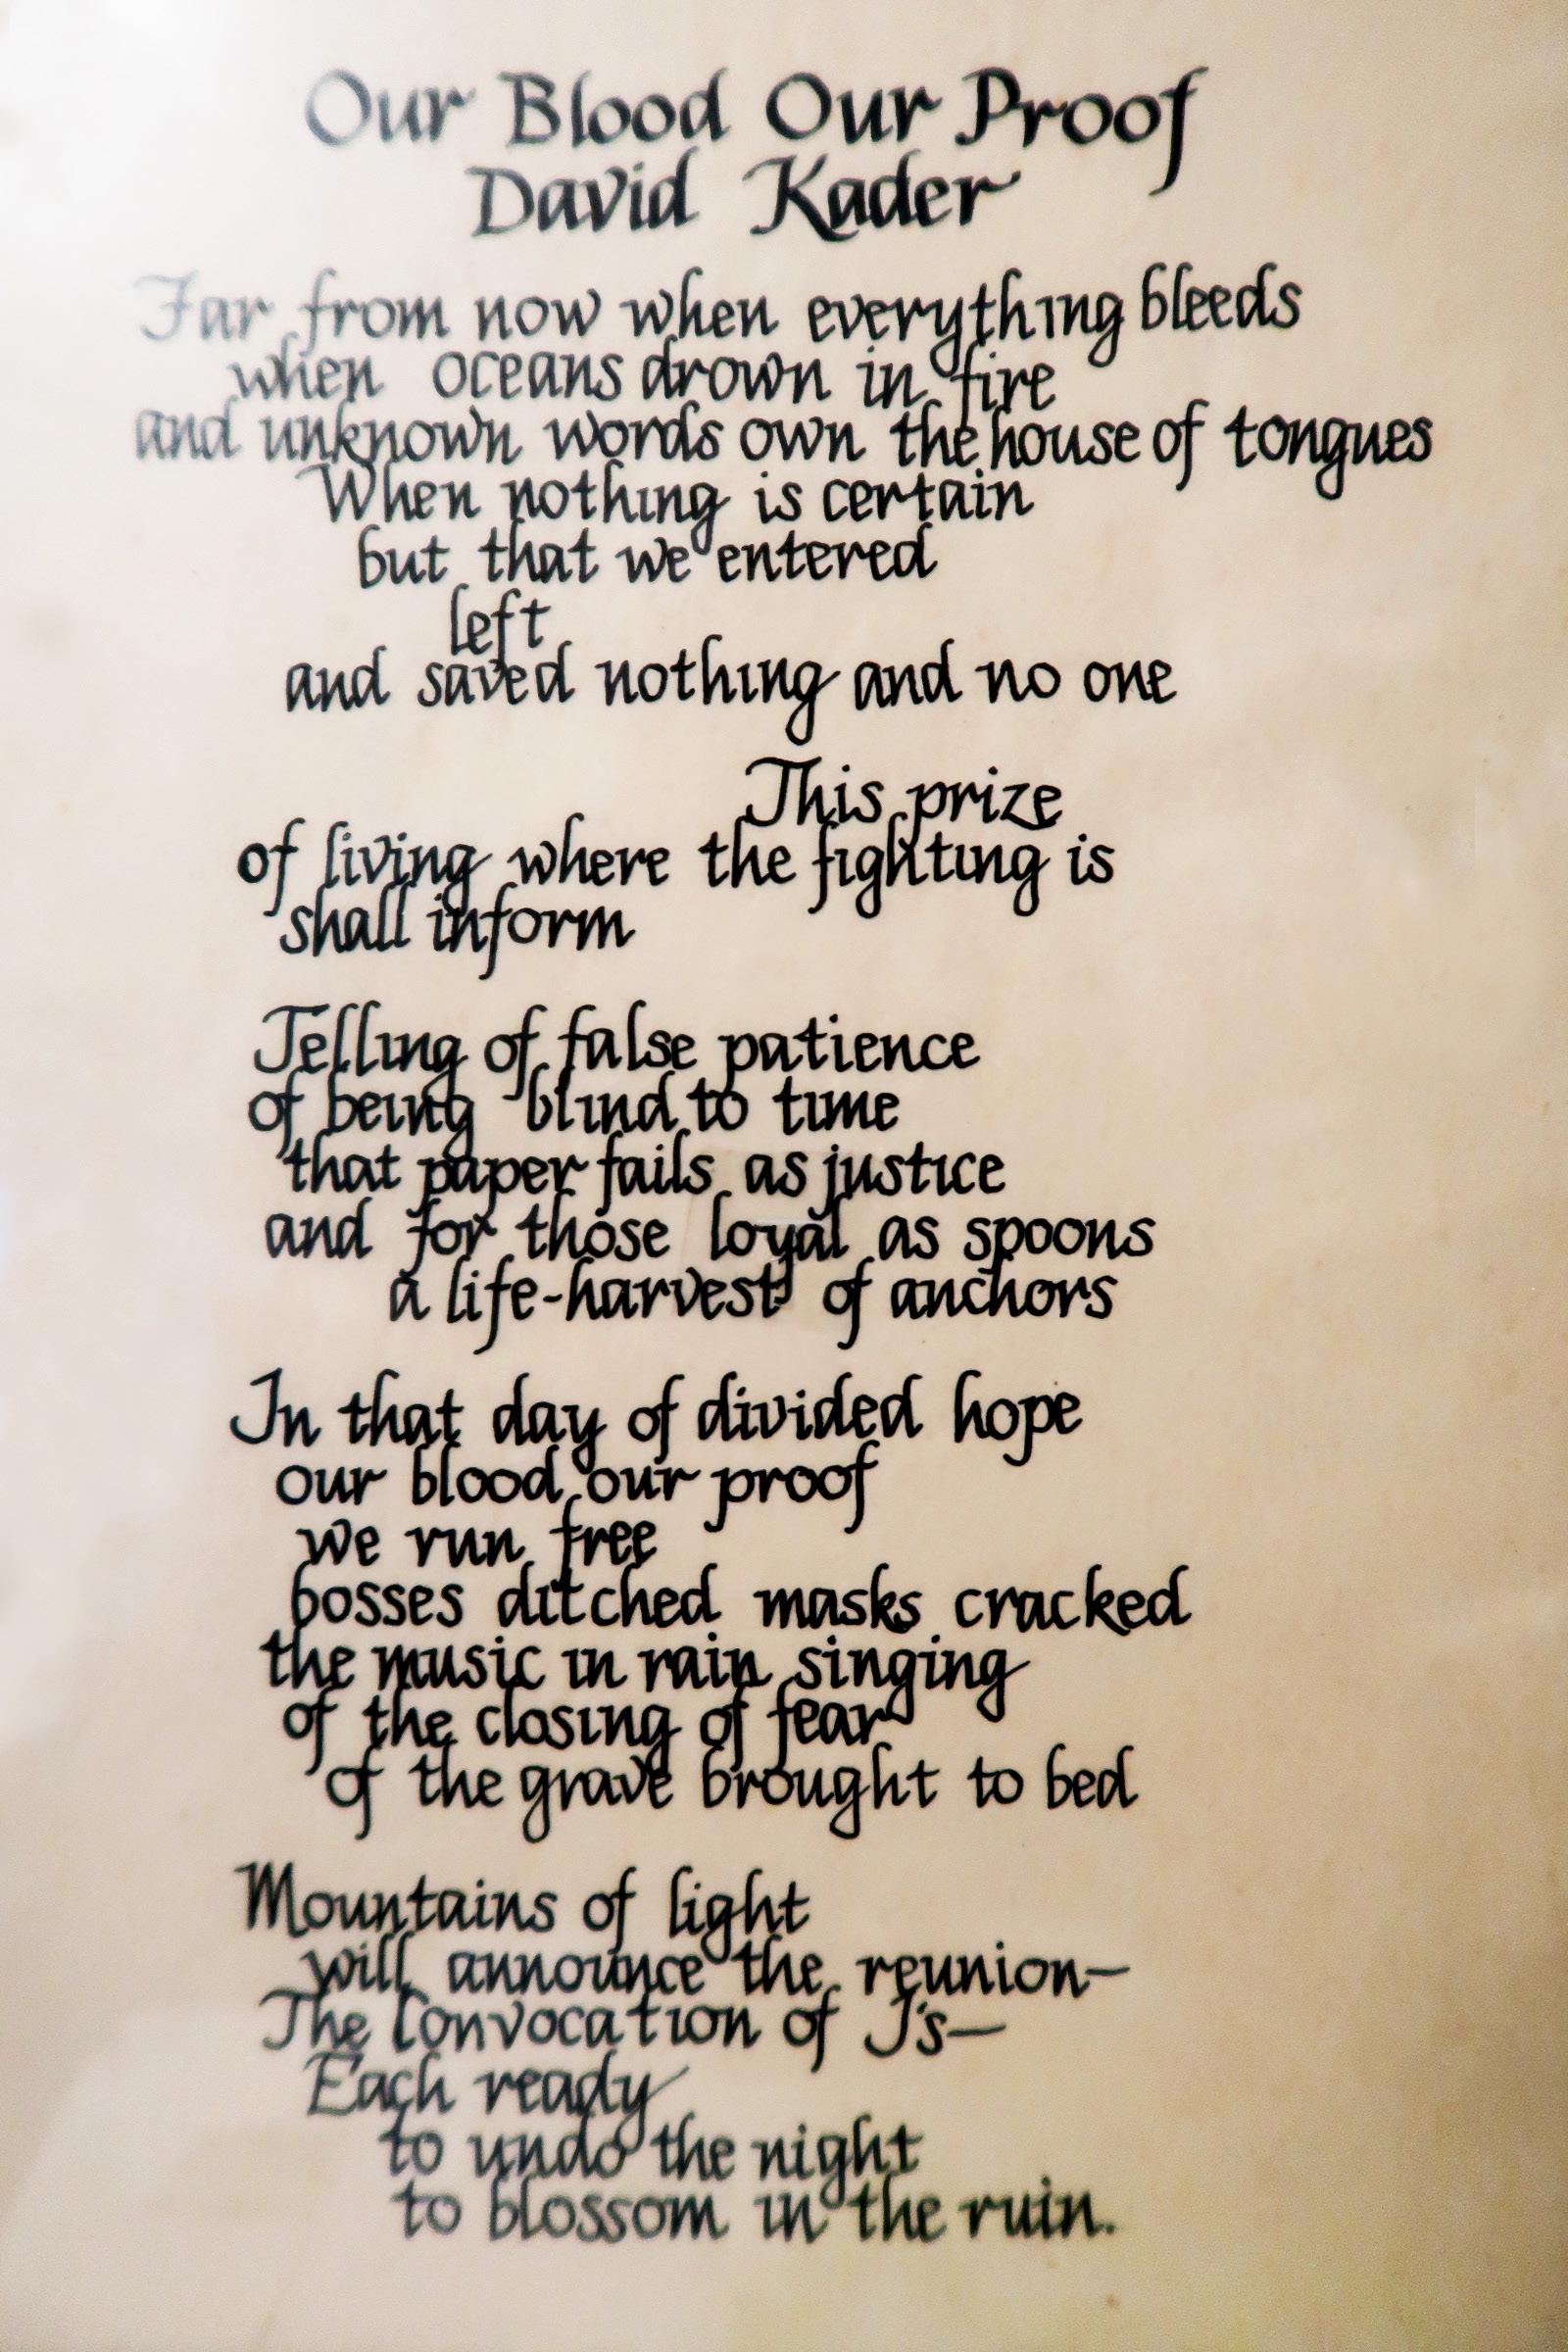 Our Blood Our Proof
David Kader
Far from now when everything bleeds
when oceans drown in fire
and unknown words own the house of tongues
When nothing is certain
but that we entered
left
and saved nothing and no one
This prize
of living where the fighting is
shall inform
Telling of false patience
of being blind to time
that paper fails as justice
and for those loyal as spoons
a life-harvest of anchors
In that day of divided hope
our blood our proof
we run free
bosses ditched masks cracked
the music in rain singing
of the closing of fear
of the grave brought to bed
Mountains of light
will announce the reunion—
The Convocation of J's—
Each ready
to undo the night
to blossom in the ruin.